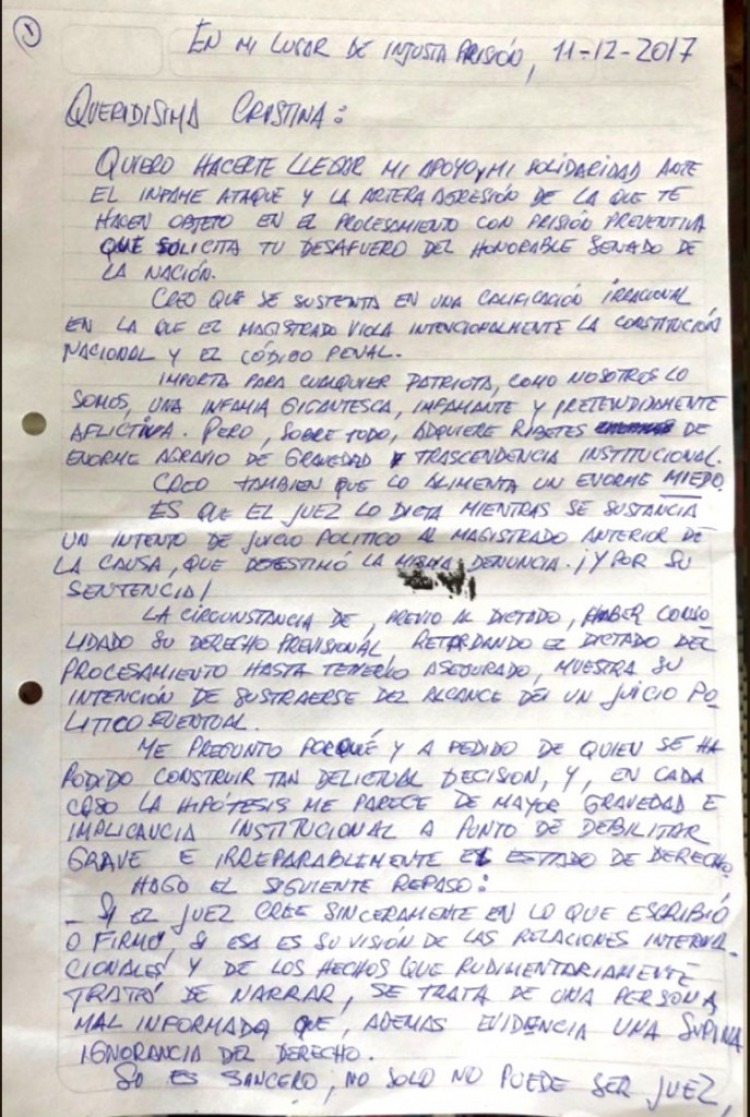 1
EN MI LUGAR DE INJUSTA PRISIÓN, 11-12-2017
QUERIDISIMA CRISTINA:
QUIERO HACERTE LLEGAR MI APOYO Y MI SOLIDARIDAD ANTE
EL INFAME ATAQUE Y LA ARTERA AGRESIÓN DE LA QUE TE
HACEN OBJETO EN EL PROCESAMIENTO CON PRISIÓN PREVENTIVA
QUE SOLICITA TU DESAFUERO DEL HONORABLE SENADO DE
LA NACIÓN.
CREO QUE SE SUSTENTA EN UNA CALIFICACIÓN IRRACIONAL
EN LA QUE EL MAGISTRADO VIOLA INTENCIONALMENTE LA CONSTITUCIÓN
NACIONAL Y EL CÓDIGO PENAL.
IMPORTA PARA CUALQUIER PATRIOTA, COMO NOSOTROS LO
SOMOS, UNA INFAMIA GIGANTESCA, INFAMANTE Y PRETENDIDAMENTE
AFLICTIVA. PERO, SOBRE TODO, ADQUIERE RIBETES DE
ENORME AGRAVIO DE GRAVEDAD Y TRASCENDENCIA INSTITUCIONAL.
CREO TAMBIEN QUE LO ALIMENTA UN ENORME MIEDO.
ES QUE EL JUEZ LO DICTA MIENTRAS SE SUSTANCIA
UN INTENTO DE JUICIO POLITICO AL MAGISTRADO ANTERIOR DE
LA CAUSA, QUE DESESTIMÓ LA MISMA DENUNCIA. ¡Y POR SU
SENTENCIA!
LA CIRCUNSTANCIA DE, PREVIO AL DICTADO, HABER CONSO
LIDADO SU DERECHO PREVISIONAL RETARDANDO EL DICTADO DEL
PROCESAMIENTO HASTA TENERLO ASEGURADO, MUESTRA SU
INTENCIÓN DE SUSTRAERSE DEL ALCANCE DE UN JUICIO PO
LITICO EVENTUAL.
ME PREGUNTO PORQUÉ Y A PEDIDO DE QUIEN SE HA
PODIDO CONSTRUIR TAN DELICTUAL DECISION, Y, EN CADA
CASO LA HIPÓTESIS ME PARECE DE MAYOR GRAVEDAD E
IMPLICANCIA INSTITUCIONAL A PUNTO DE DEBILITAR
GRAVE E IRREPARABLEMENTE EL ESTADO DE DERECHO
HAGO EL SIGUIENTE REPASO:
- SI EL JUEZ CREE SINCERAMENTE EN LO QUE ESCRIBIÓ
O FIRMÓ, SI ESA ES SU VISIÓN DE LAS RELACIONES INTERNA-
CIONALES Y DE LOS HECHOS QUE RUDIMENTARIAMENTE
TRATÓ DE NARRAR, SE TRATA DE UNA PERSONA
MAL INFORMADA QUE, ADEMAS EVIDENCIA UNA SUPINA
IGNORANCIA DEL DERECHO.
SI ES SINCERO, NO SOLO NO PUEDE SER JUEZ,